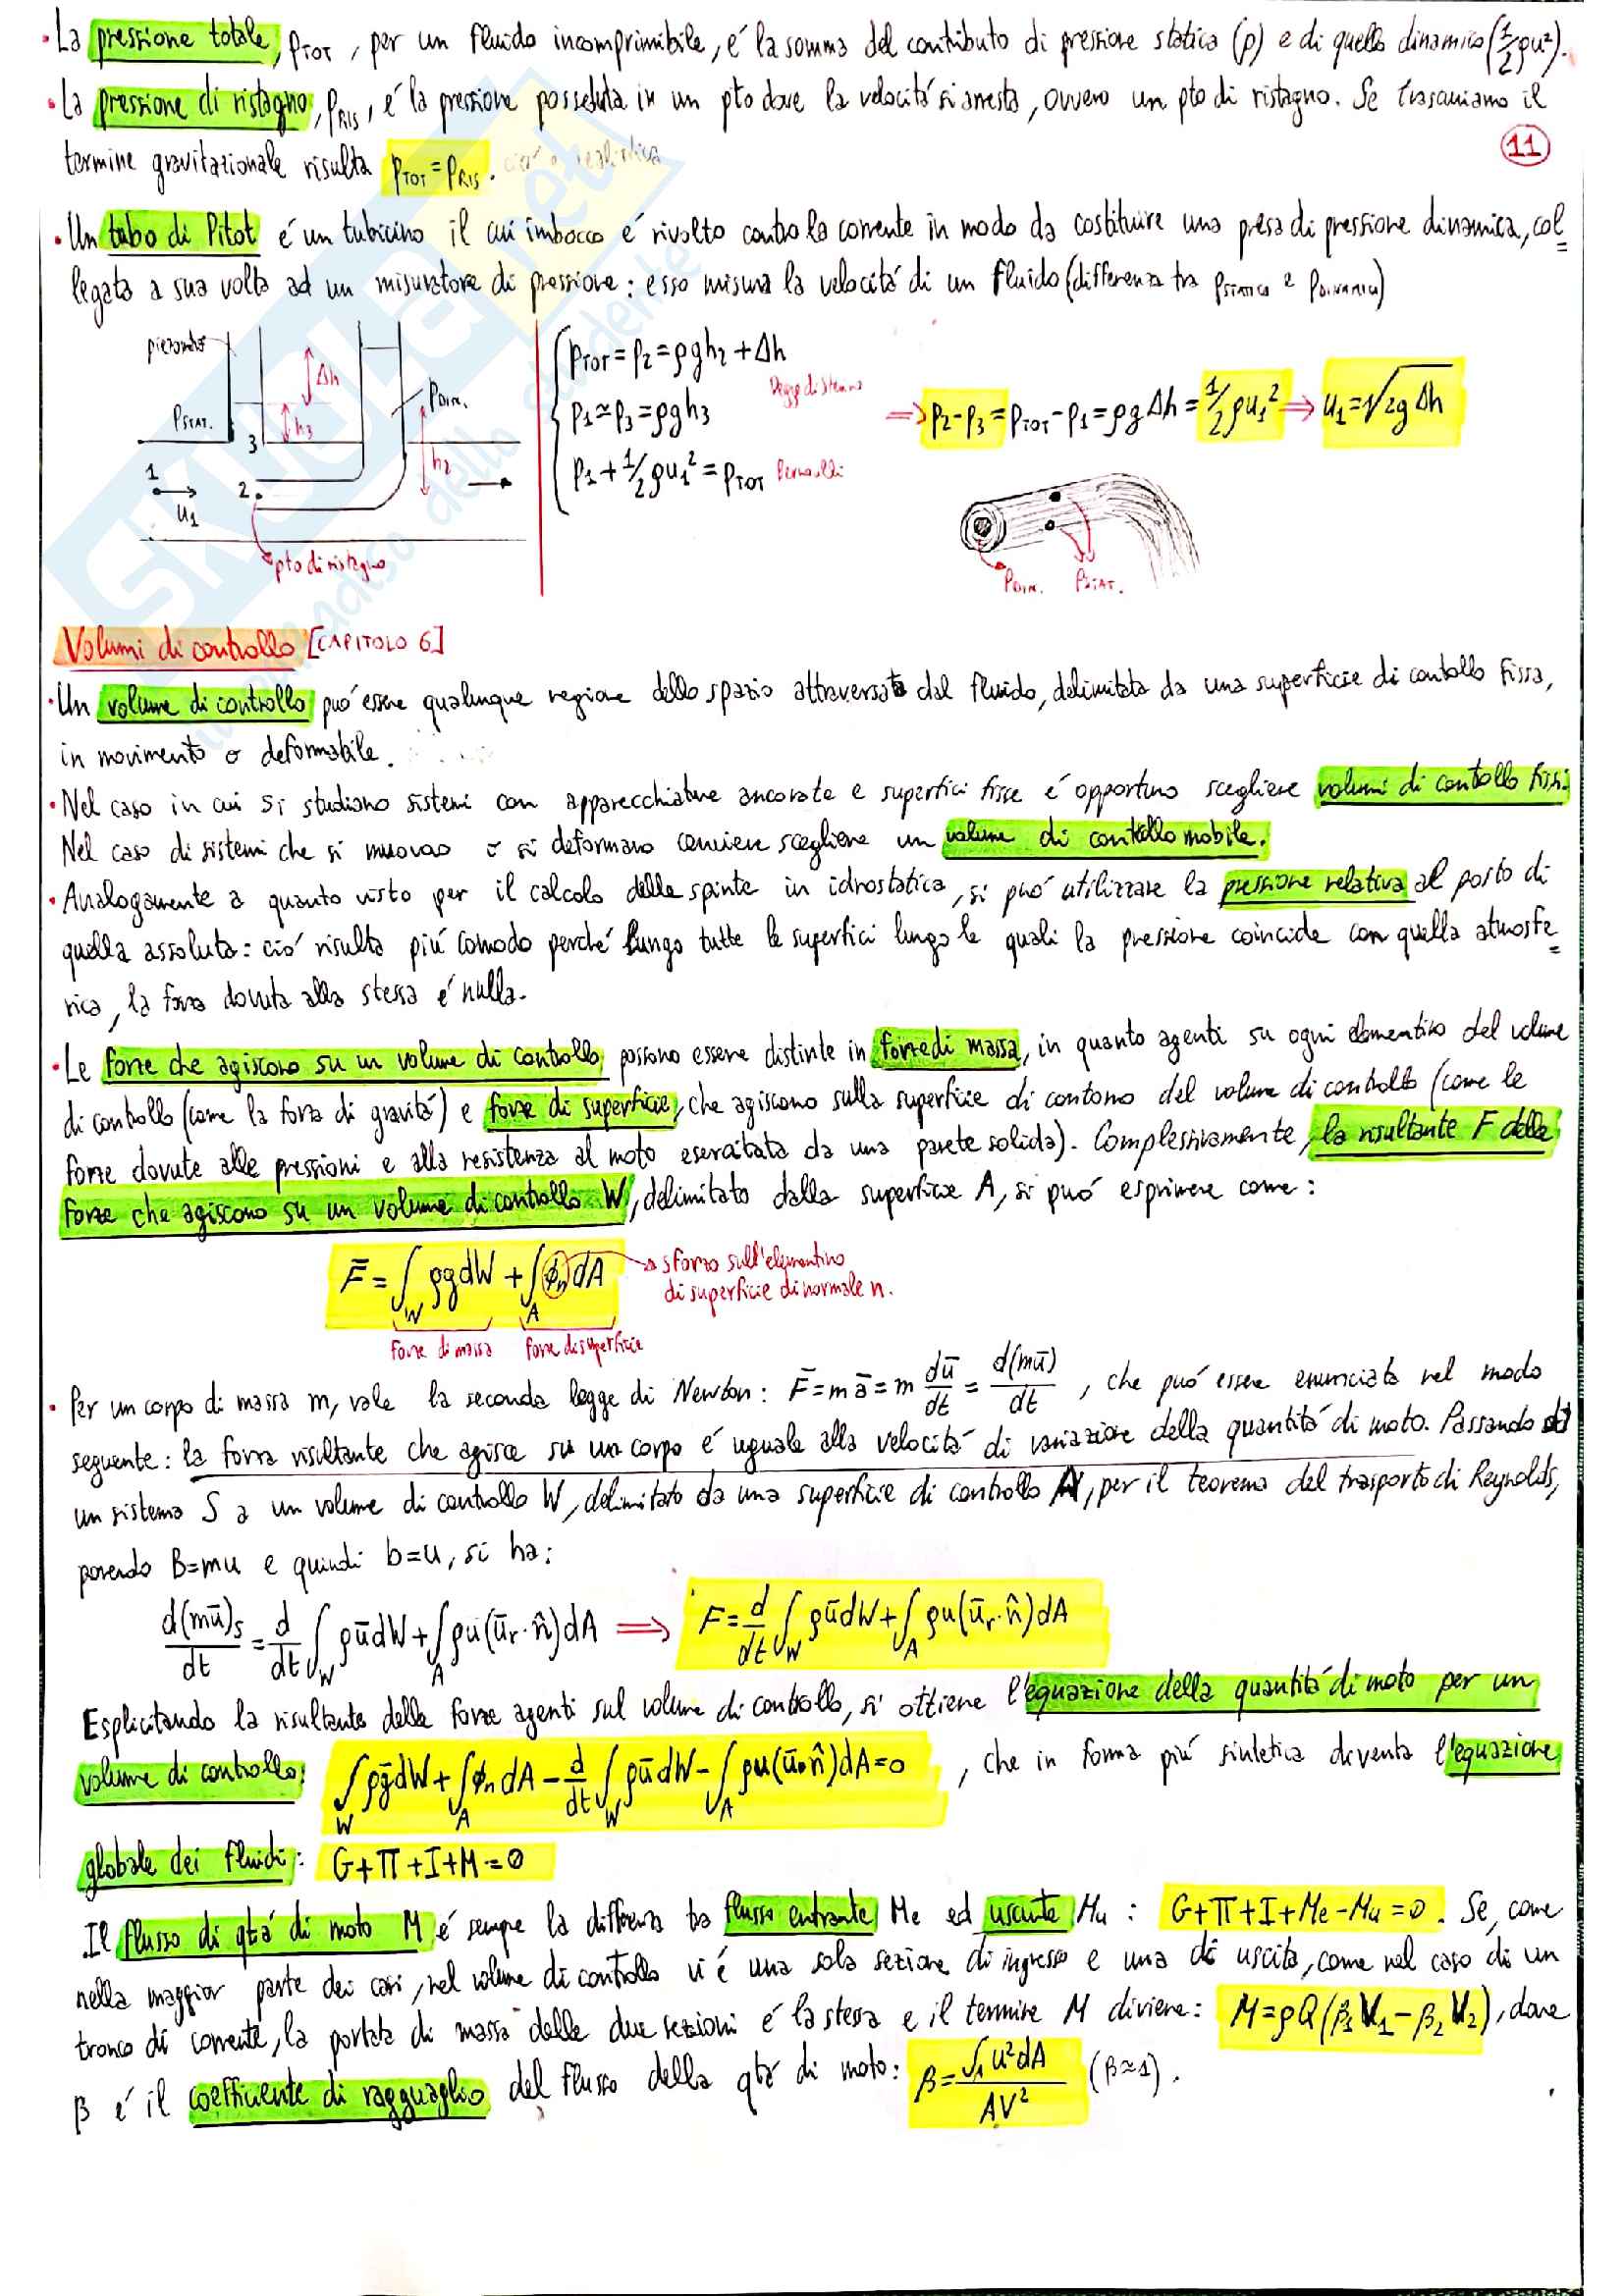 • La pressione totale, pTOT, per un fluido incomprimibile, é la somma del contributo di pressione statica (p) e di quello dinamico (1/2 ρu²).
• La pressione di ristagno, pRIS, é la pressione posseduta in un pto dove la velocitá si arresta, ovvero un pto di ristagno. Se trascuriamo il
11
termine gravitazionale risulta pTOT = pRIS.
• Un tubo di Pitot é un tubicino il cui imbocco é rivolto contro la corrente in modo da costituire una presa di pressione dinamica, col=
legata a sua volta ad un misuratore di pressione: esso misura la velocitá di un fluido (differenza tra pSTATICA e pDINAMICA)
Δh
PSTAT.
PDIN.
h3
3
h2
1
2
u1
pto di ristagno
pTOT = p2 = ρgh2 + Δh
p1 ≃ p3 = ρgh3
p1 + 1/2 ρu1² = pTOT Bernoulli
Legge di Stevino
⇒ p2 - p3 = pTOT - p1 = ρgΔh = 1/2 ρu1² ⇒ u1 = √2gΔh
PDIN. PSTAT.
Volumi di controllo [CAPITOLO 6]
• Un volume di controllo puó essere qualunque regione dello spazio attraversata dal fluido, delimitata da una superficie di controllo fissa,
in movimento o deformabile.
• Nel caso in cui si studiano sistemi con apparecchiature ancorate e superfici fisse é opportuno scegliere volumi di controllo fissi.
Nel caso di sistemi che si muovono o si deformano conviene scegliere un volume di controllo mobile.
• Analogamente a quanto visto per il calcolo delle spinte in idrostatica, si puó utilizzare la pressione relativa al posto di
quella assoluta: ció risulta piú comodo perché lungo tutte le superfici lungo le quali la pressione coincide con quella atmosfe=
rica, la forza dovuta alla stessa é nulla.
• Le forze che agiscono su un volume di controllo possono essere distinte in forze di massa, in quanto agenti su ogni elementino del volume
di controllo (come la forza di gravitá) e forze di superficie, che agiscono sulla superficie di contorno del volume di controllo (come le
forze dovute alle pressioni e alla resistenza al moto esercitata da una parete solida). Complessivamente, la risultante F delle
forze che agiscono su un volume di controllo W, delimitato dalla superficie A, si puó esprimere come:
F̄ = ∫W ρgdW + ∫A ϕn dA → sforzo sull'elementino
di superficie di normale n.
forze di massa forze di superficie
• Per un corpo di massa m, vale la seconda legge di Newton: F̄ = mā = m dū/dt = d(mū)/dt, che puó essere enunciata nel modo
seguente: la forza risultante che agisce su un corpo é uguale alla velocitá di variazione della quantitá di moto. Passando da
un sistema S a un volume di controllo W, delimitato da una superficie di controllo A, per il teorema del trasporto di Reynolds,
ponendo B=mu e quindi b=u, si ha:
d(mū)s/dt = d/dt ∫W ρūdW + ∫A ρu(ūr·n̂)dA ⇒ F = d/dt ∫W ρūdW + ∫A ρu(ūr·n̂)dA
Esplicitando la risultante delle forze agenti sul volume di controllo, si ottiene l'equazione della quantitá di moto per un
volume di controllo: ∫W ρḡdW + ∫A ϕn dA - d/dt ∫W ρūdW - ∫A ρu(ū·n̂)dA = 0, che in forma piú sintetica diventa l'equazione
globale dei fluidi: G+Π+I+M=0
Il flusso di qtá di moto M é sempre la differenza tra flusso entrante Me ed uscente Mu: G+Π+I+Me-Mu=0. Se, come
nella maggior parte dei casi, nel volume di controllo vi é una sola sezione di ingresso e una di uscita, come nel caso di un
tronco di corrente, la portata di massa delle due sezioni é la stessa e il termine M diviene: M=ρQ(β1V1-β2V2), dove
β é il coefficiente di ragguaglio del flusso della qtá di moto: β = ∫A u²dA / AV² (β≃1).